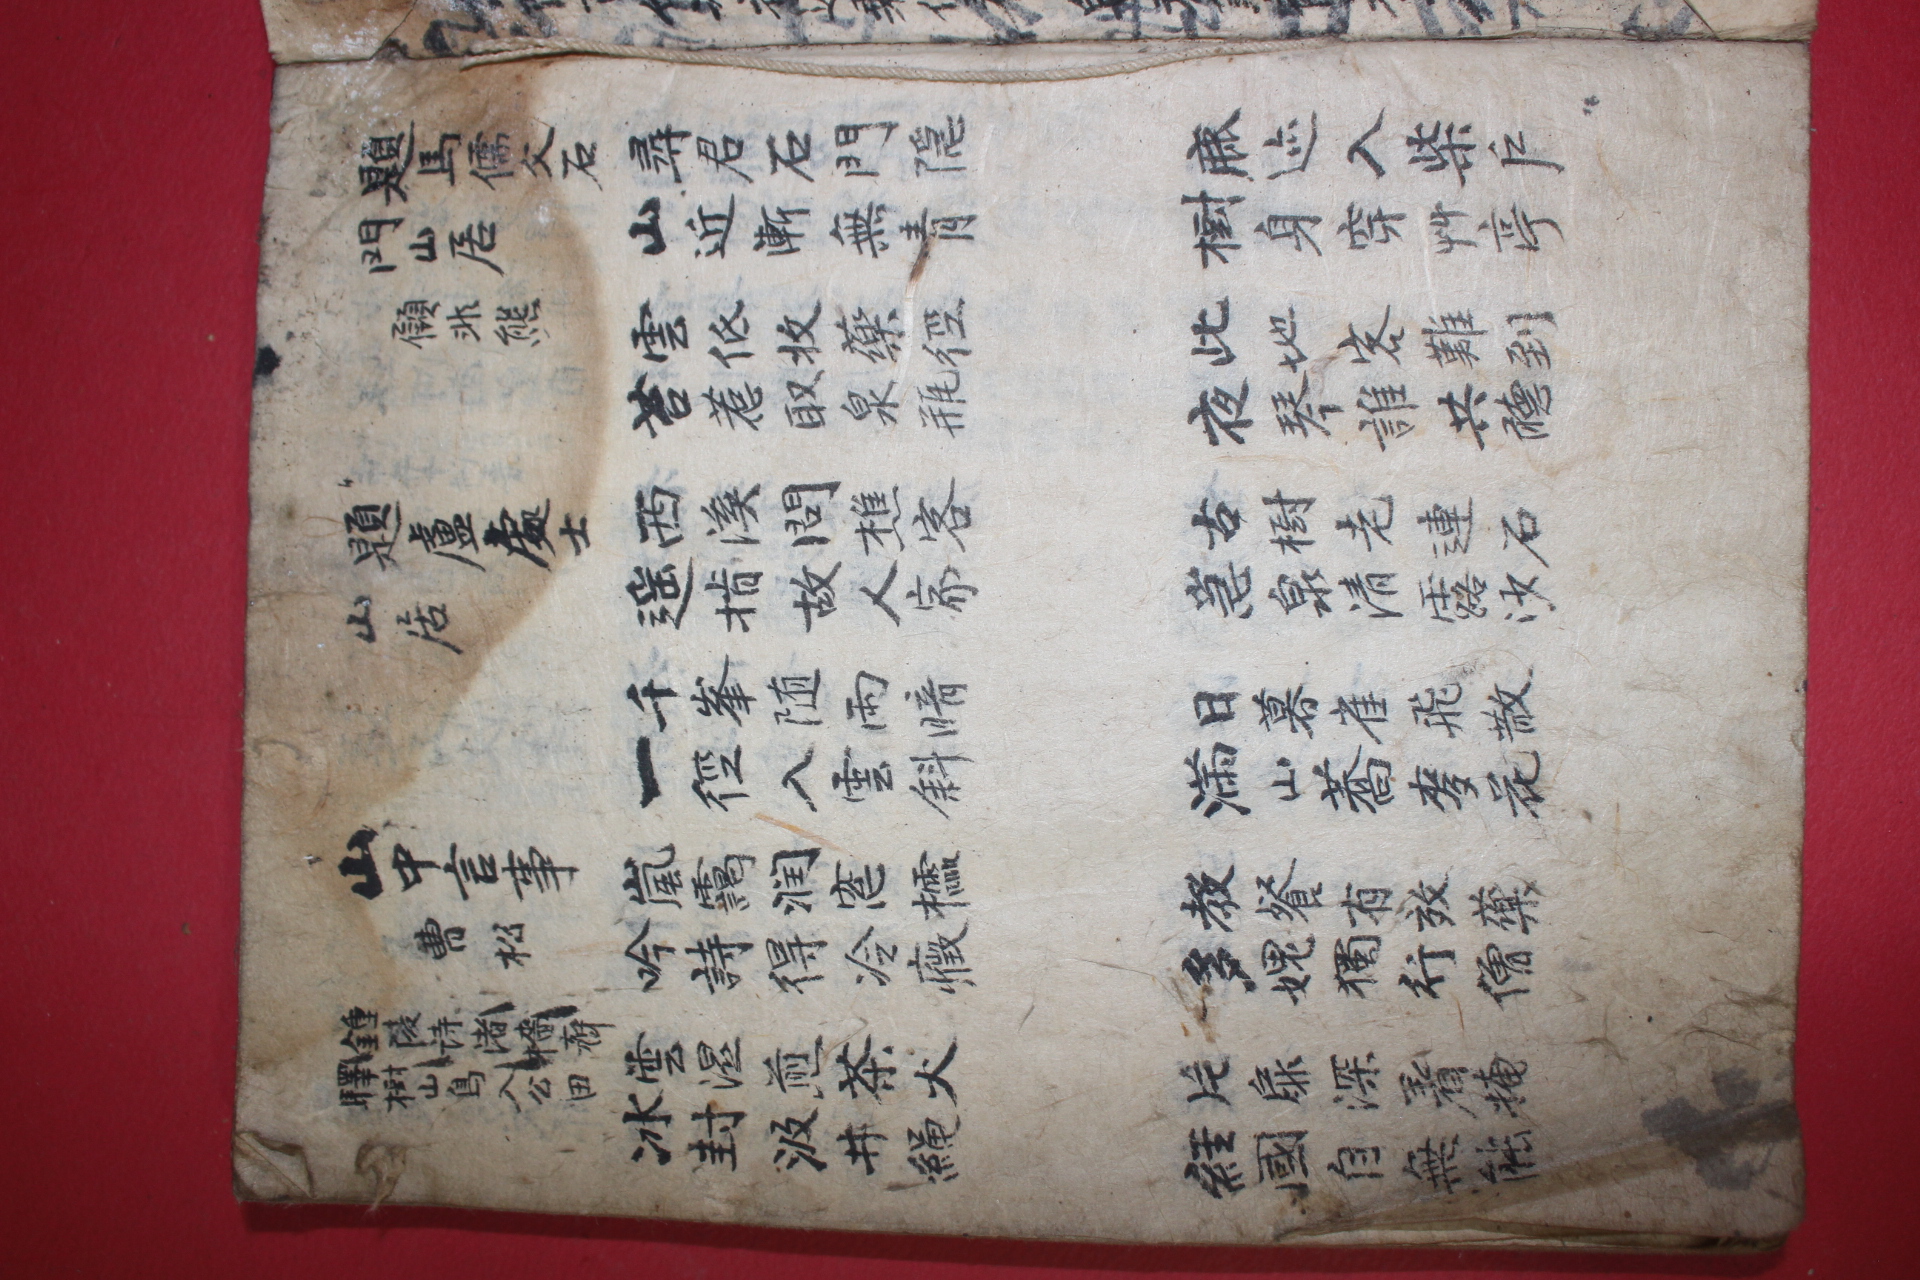 題馬儒乂石
門山居
顧非熊
尋君石門隠
山近漸無青
雲低收藥徑
苔惹取泉瓶
題盧處士
山居
西溪問樵客
遥指故人家
千峯随雨暗
一徑入雲斜
山中言事
曹松
嵐靄潤窓櫺
吟詩得冷癥
雲湿煎茶火
冰封汲井繩
鍾陵诗渚檣齊
驛樹山鳥入公田
麻迹入柴戶
樹身穿艸亭
此地客難到
夜琴誰共聽
古樹老連石
急泉清露沙
日暮雀飛散
滿山蕎麥花
教餐有效藥
多媿獨行僧
片扉深着掩
經國自無能